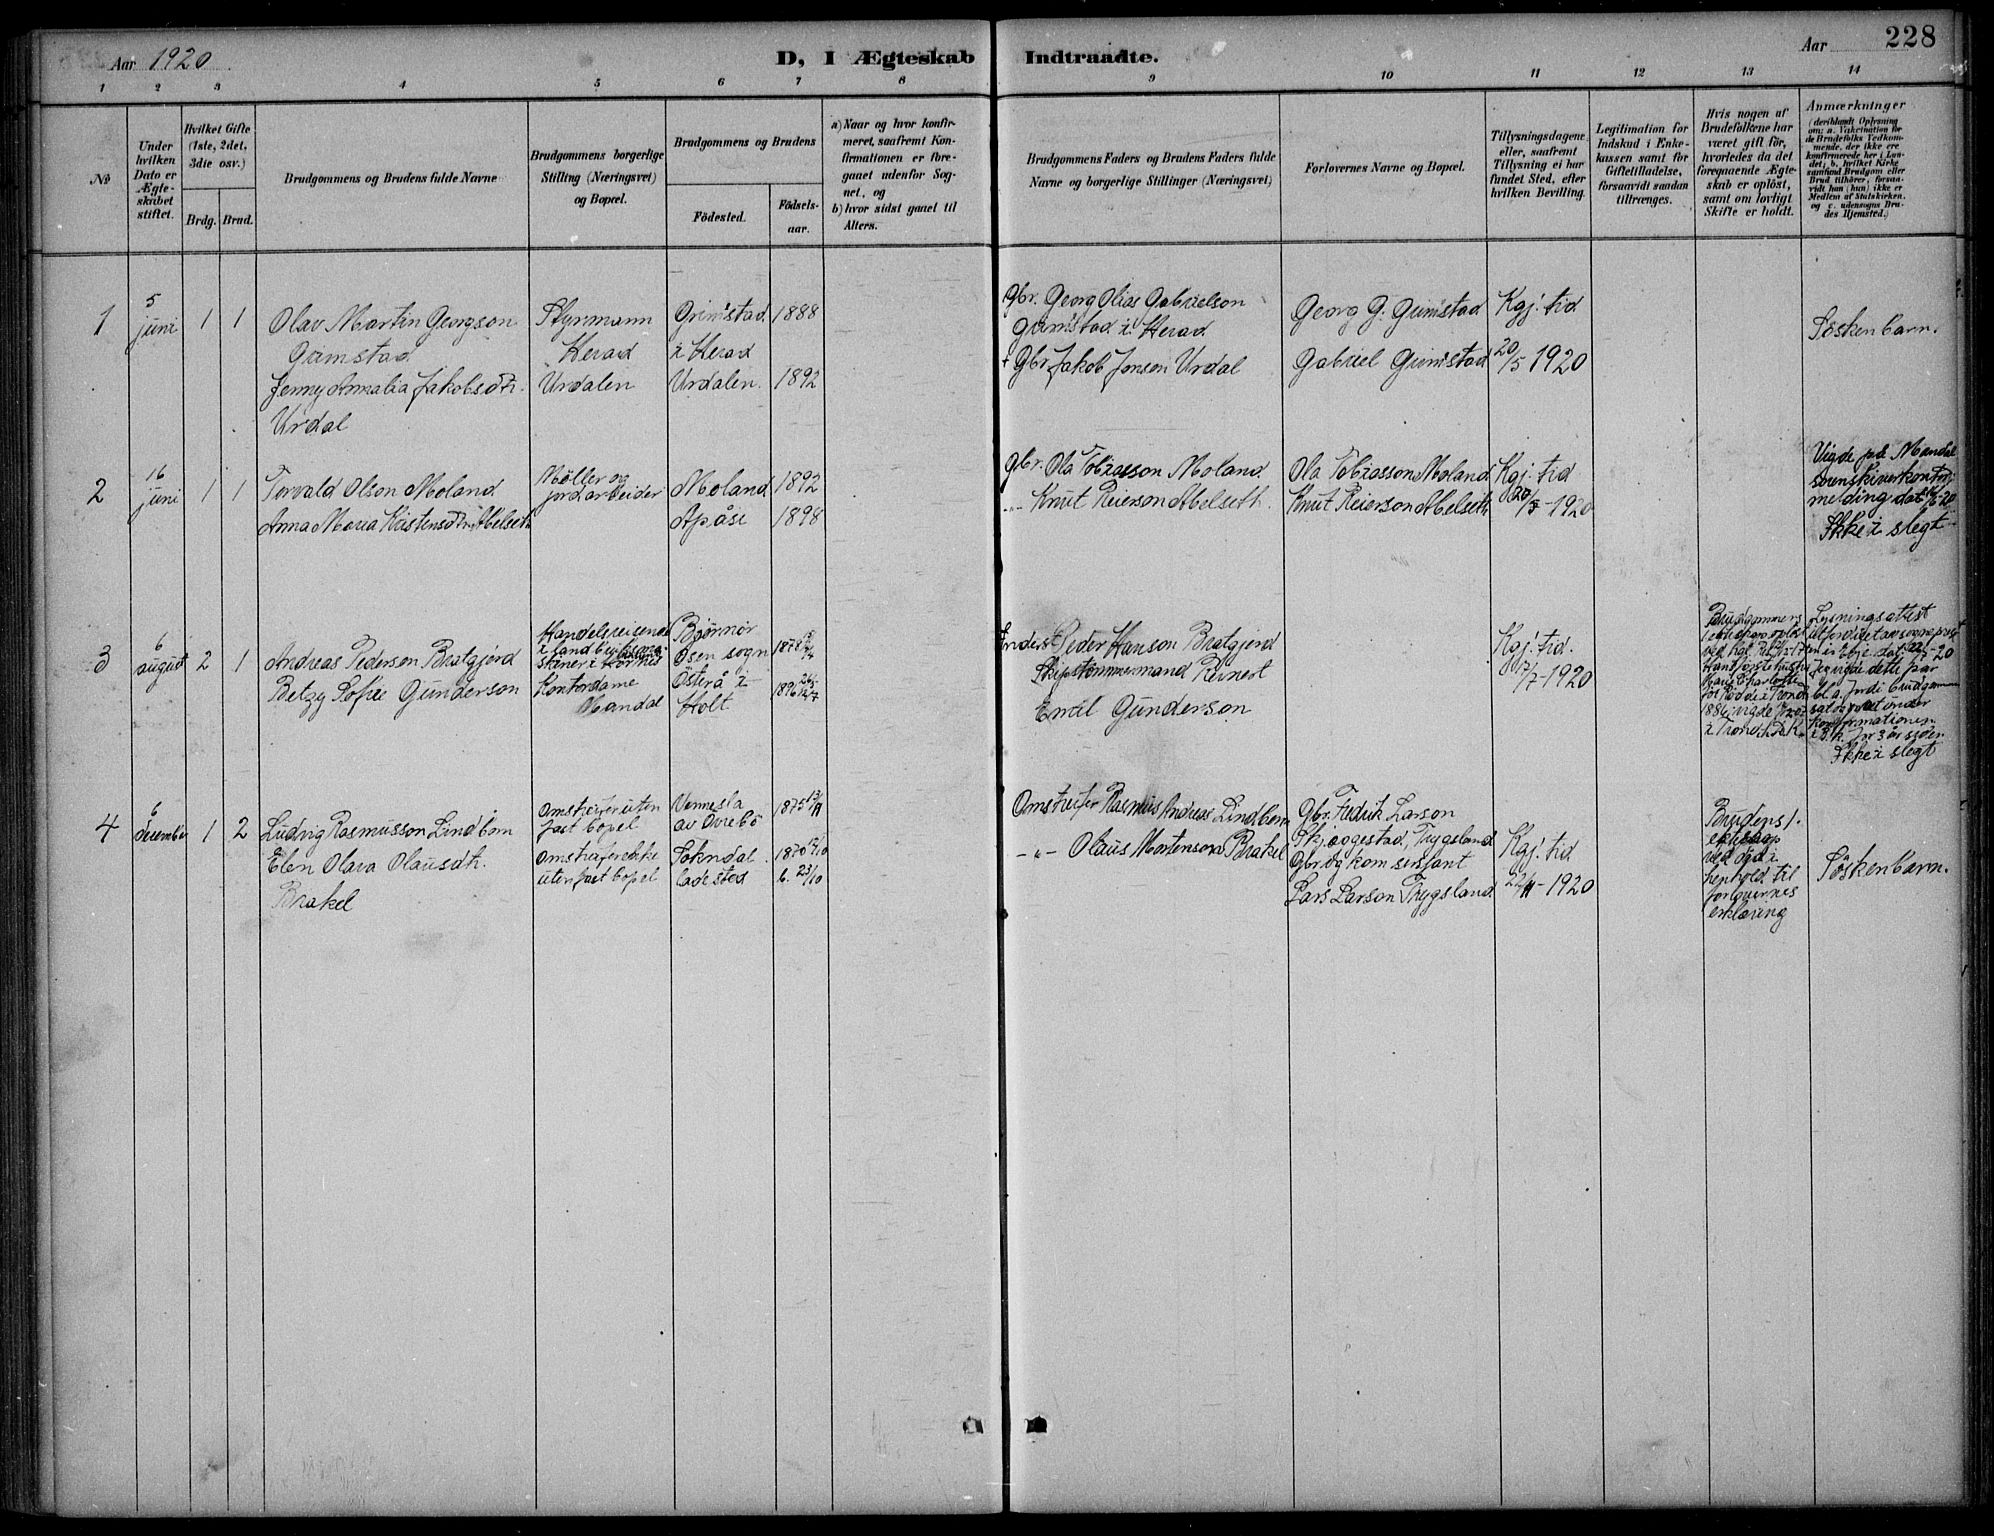 Aar 1920
D, I Ægteskab Indtraadte.
Aar 228
1 2 3 4 5 6 7 8 9 10 11 12 13 14
No
Under hvilken Dato er Ægteskabet stiftet.
Hvilket Gifte (1ste, 2det, 3die osv.)
Brdg. Brud.
Brudgommens og Brudens fulde Navne
Brudgommens borgerlige Stilling (Næringsvei) og Bopæl.
Brudgommens og Brudens
Födested.
Födselsaar.
a) Naar og hvor konfirmeret, saafremt Konfirmationen er foregaaet udenfor Sognet, og
b) hvor sidst gaaet til Alters.
Brudgommens Faders og Brudens Faders fulde Navne og borgerlige Stillinger (Næringsvei)
Forlovernes Navne og Bopæl.
Tillysningsdagene eller, saafremt Tillysning ei har fundet Sted, efter hvilken Bevilling.
Legitimation for Indskud i Enkekassen samt for Giftetilladelse, forsaavidt saadan tiltrænges.
Hvis nogen af Brudefolkene har været gift för, hvorledes da det foregaaende Ægteskab er oplöst, samt om lovligt Skifte er holdt.
Anmærkninger (deriblandt Oplysning om: a. Vakcination for de Brudefolks Vedkommende, der ikke ere konfirmerede her i Landet; b. hvilket Kirkesamfund Brudgom eller Brud tilhörer, forsaavidt han (hun) ikke er Medlem af Statskirken, og c. udensogns Brudes Hjemsted.)
1
5 juni
1 1
Olav Martin Georgson
Grimstad
Jenny Amalia Jakobsdtr.
Urdal
Styrmann
Herad
Urdalen
Grimstad
i Herad
Urdalen.
1888
1892
Gbr. Georg Olias Gabrielson
Grimstad i Herad
+ Gbr Jakob Jonson Urdal
Georg G. Grimstad
Gabriel Grimstad
Kgj. tid
20/5 1920
Söskenbarn.
2
16 juni
1 1
Torvald Olson Moland
Anna Maria Kristensdtr. Abelseth
Möller og
jordarbeider
Moland
Apåsi
1892
1898
Gbr. Ola Tobiasson Moland.
-"- Knut Reierson Abelseth.
Ola Tobiasson Moland
Knut Reierson Abelseth
Kgj. tid
20/5-1920
Vigde på Mandal
sorenskriverkontor
melding dat
Ikke i slegt
3
6 august
2 1
Andreas Pederson Bratgjerd
Betzy Sofie Gunderson
Handelsreisende
Kontordame
Mandal
Bjørnör
Osen sogn
Österå i
Holt
1878
1896
Peder Hanson Bratgjerd
Skipstømmermand Reinert
Emil Gunderson
Kgj. tid.
17/7-1920
Brudgommens
i Trondhj.
Lysningsattest
utferdiget av sogneprest
dette par
konfirmationen
for 3 år siden
Ikke i slegt
4
6 december
1 2
Ludvig Rasmusson Lindbom
Elen Olava Olausdtr.
Brakel
Omstreifer uten
fast bopel
Omstreiferske
uten fast bopel
Vennesla
av Øvrebö
Sokndal
ladested
1875 13/11
1870
Omstreifer Rasmus Andreas Lindbom
-"- Olaus Mortenson Brakel
Gbr. Fredrik Larson
Skjeggestad, Trygsland
Gbr og kom.sersjant
Lars Larson Trygsland
Kgj. tid
22/11-1920
Brudens 1.
ekteskap
ved död i
henhold til
forlovernes
erklæring
Söskenbarn.